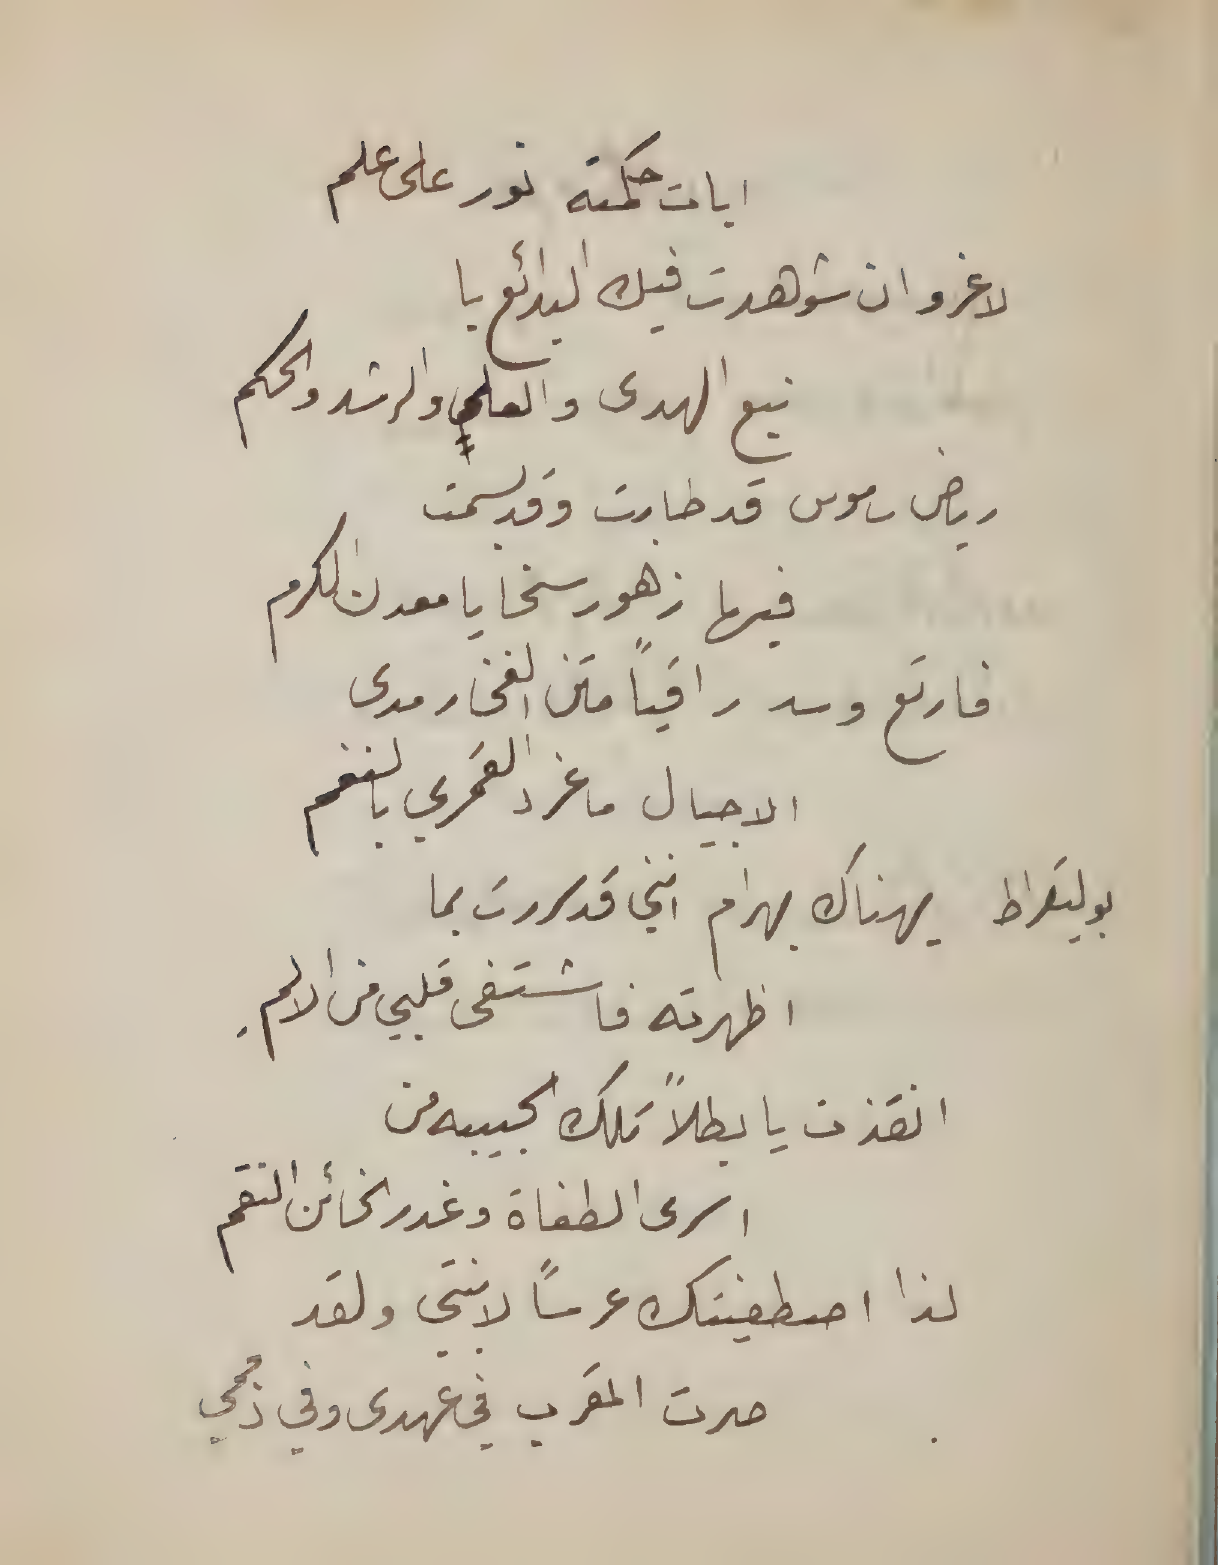 ايات حكمته نور على علم
لا غرو ان شوهدت فيك البدائع يا
نبع الهدى والعلم والرشد والحكم
رياض ساموس قد طابت وقد بسمت
فيها زهور سخايا معدن الكرم
فارتع وسد راقياً متن الفخار مدى
الاجيال ما غرد القمري بالنغم
بوليقراط يهناك بهرام انني قد سررت بما
اظهرته فاشتفى قلبي من الالم.
انقذت يا بطلاً تلك الحبيبه من
اسرى الطغاة وغدر الخائن النقم
لذا اصطفيتك عرساً لابنتي ولقد
صرت المقرب في عهدى وفي ذممي